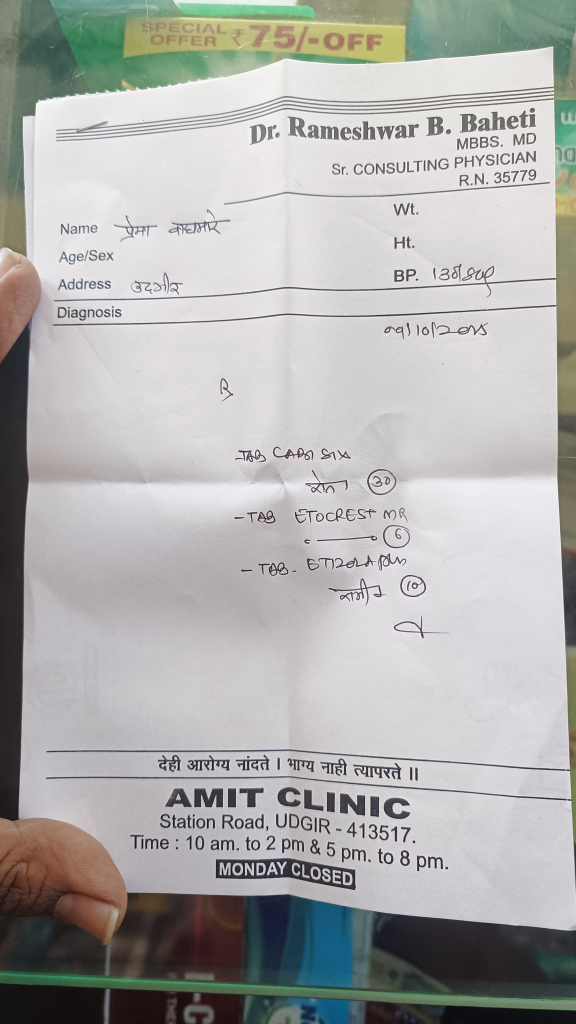 SPECIAL OFFER ₹75/-OFF
Dr. Rameshwar B. Baheti
MBBS. MD
Sr. CONSULTING PHYSICIAN
R.N. 35779
Name प्रेमा वाघमारे
Wt.
Age/Sex
Ht.
Address उदगीर
BP. 130/80
Diagnosis
09/10/2025
R
-TAB
रोज 30
-TAB ETOCREST MR
6
-TAB. ETIZOLA Plus
रात्री 10
देही आरोग्य नांदते । भाग्य नाही त्यापरते ॥
AMIT CLINIC
Station Road, UDGIR - 413517.
Time : 10 am. to 2 pm & 5 pm. to 8 pm.
MONDAY CLOSED